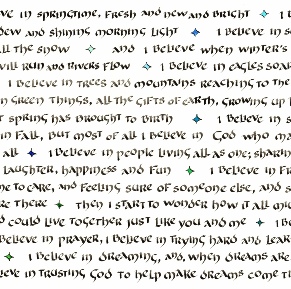 ve in springtime, fresh and new and bright ✦ I
dew and shining morning light ✦ I believe in s
all the snow ✦ and I believe when winter's
will run and rivers flow ✦ I believe in eagles soar
I believe in trees and mountains reaching to the
n green things, all the gifts of earth, growing up
t spring has brought to birth ✦ I believe in s
in fall, but most of all I believe in God who ma
all ✦ I believe in people living all as one; sharin
laughter, happiness and fun ✦ I believe in fr
me to care, and feeling sure of someone else, and s
re there ✦ then I start to wonder how it all mig
d could live together just like you and me ✦ I be
believe in prayer, I believe in trying hard and lear
✦ I believe in dreaming, and, when dreams are
ieve in trusting God to help make dreams come t